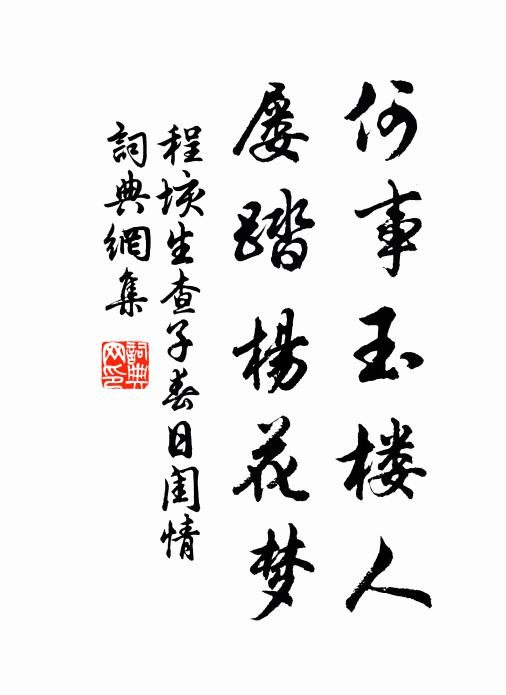 何事玉楼人
屡踏杨花梦
程垓生查子春日闺情
詞典網集
詞典
网印